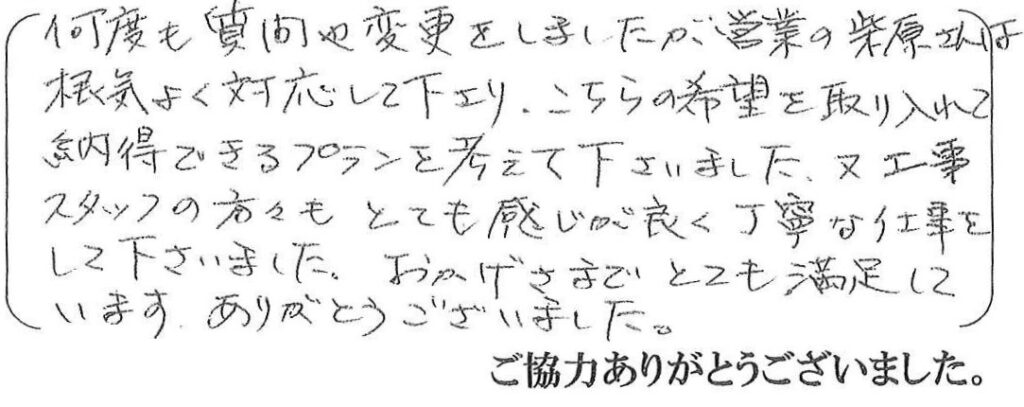 何度も質問や変更をしましたが、営業の柴原さんは
根気よく対応して下さり、こちらの希望を取り入れて
納得できるプランを考えて下さいました。又工事
スタッフの方々もとても感じが良く丁寧な仕事を
して下さいました。おかげさまでとても満足して
います。ありがとうございました。
ご協力ありがとうございました。